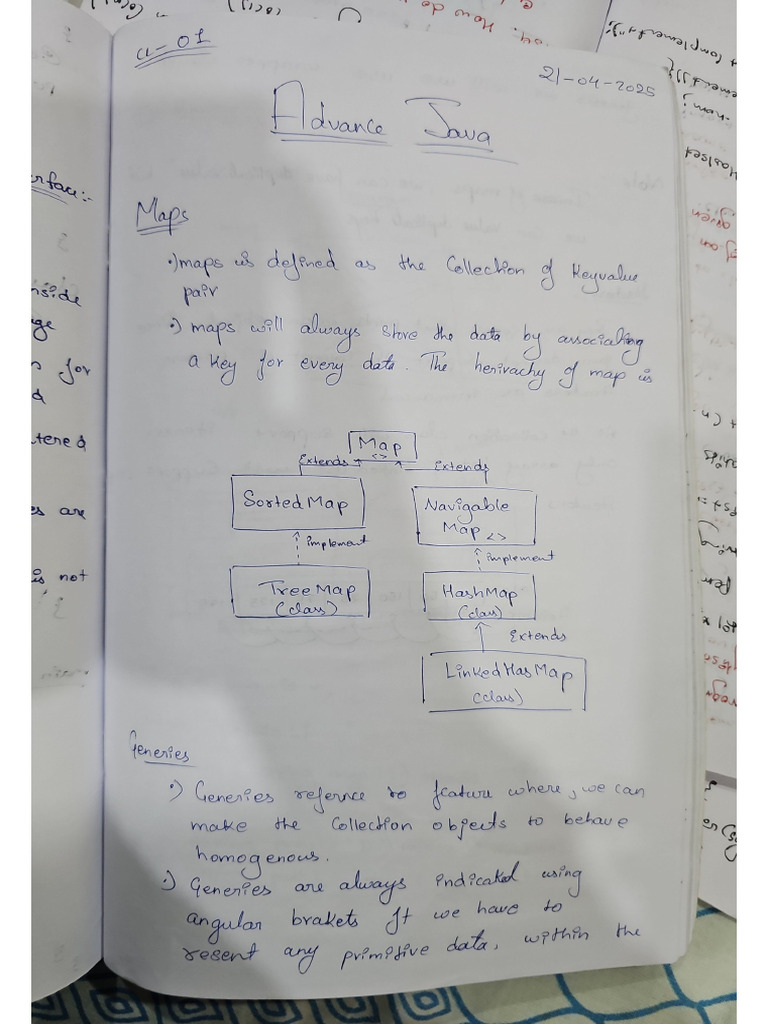 21-04-2025
Advance Java
Maps
•) maps is defined as the Collection of Keyvalue
pair
•) maps will always store the data by associating
a key for every data. The herirachy of map is
Map
<>
Extends
Extends
SortedMap
Navigable
Map <>
implement
implement
TreeMap
(class)
HashMap
(class)
Extends
LinkedHasMap
(class)
Generies
•) Generies refernce to feature where, we can
make the Collection objects to behave
homogenous.
•) Generies are always indicated using
angular brakets If we have to
resent any primitive data, within the
erface:-
nside
ge
for
tered
es are
is not